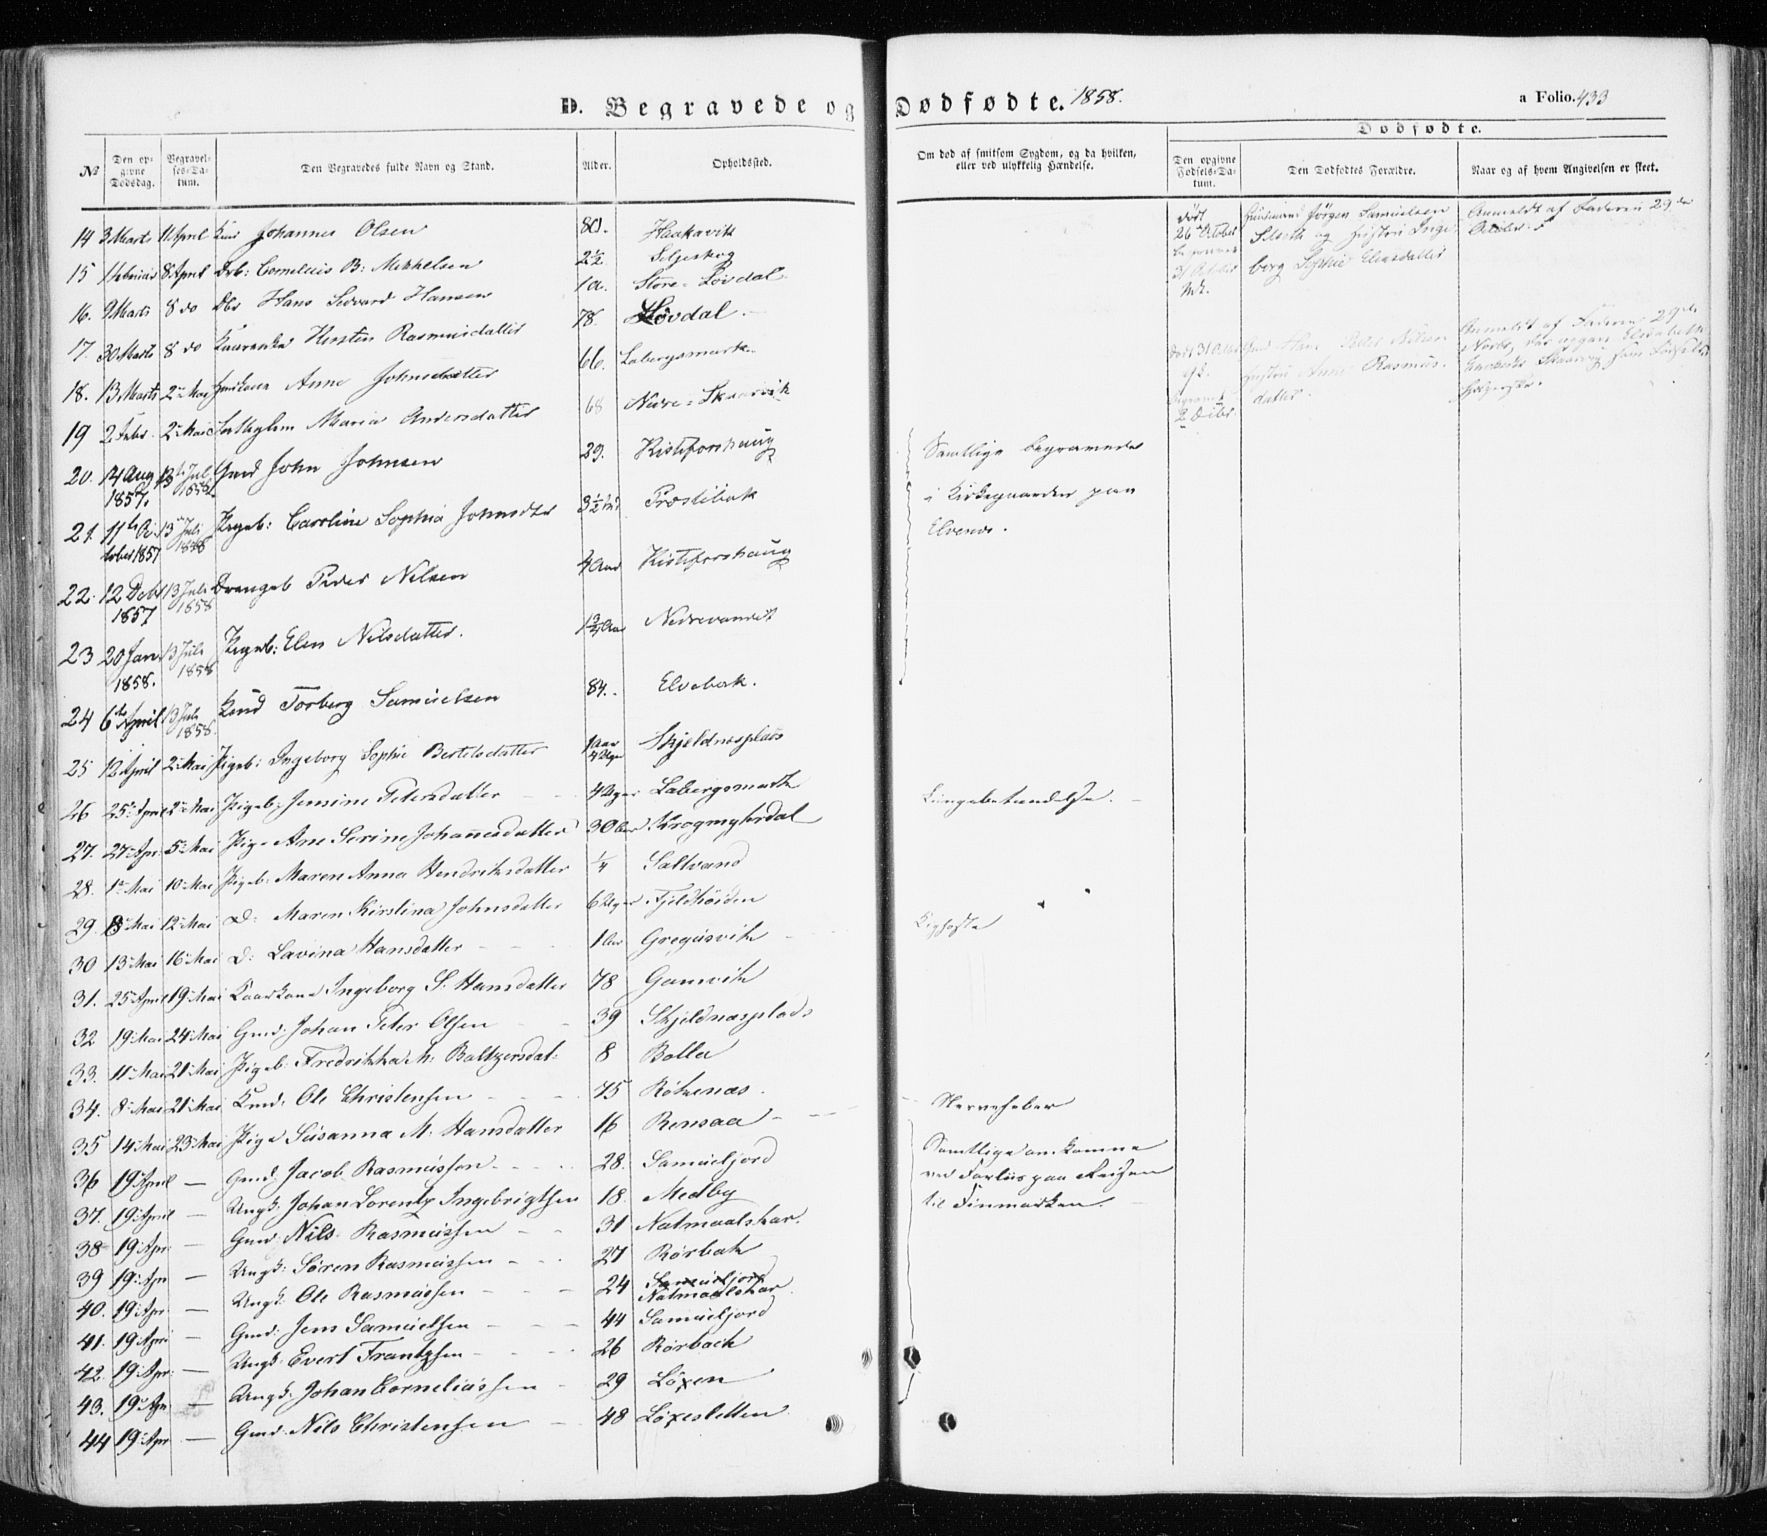 D. Begravede og Dødfødte. 1858.
a Folio. 433
Dødfødte.
No
Den opgivne Dødsdag.
Begravelses-Datum.
Den Begravedes fulde Navn og Stand.
Alder.
Opholdssted.
Om død af smitsom Sygdom, og da hvilken, eller ved ulykkelig Hændelse.
Den opgivne Fødsels-Datum.
Den Dødfødtes Forældre.
Naar og af hvem Angivelsen er skeet.
14 3 Marts 11 April Johannes Olsen 80.
15 8 April Drb: Cornelius B: Mikkelsen 2½ Seljeskog
16. 9 Marts 8 do Hans Edvard Hansen 1 a. Store-Løvdal
17. 30 Marts 8 do Kirsten Rasmusdatter 78. Løvdal
18. 13 Marts 2 Mai Anne Johnsdatter 66. Labergsmark
19 2 Febr. 2 Mai Maria Andersdatter 68 Nedre-Skaarvik
20. 14 Aug 1857. 13 Juli 1858 Gmd John Johnsen 29. Kistiforshaug
Samtlige begravede
i Kirkegaarden paa
Elvenes.
21. 11te October 1857 13 Juli 1858 Pigeb: Caroline Sophia Johnsdtr 3½ Prostibak
22. 12 Debr 1857 13 Juli 1858 Drengeb Peder Nilsen 4 Aar Kistiforshaug
23 20 Jan 1858. 13 Juli 1858 Pigeb: Elen Nilsdatter. 1¾ Aar Nedrevandet
24 6te April 13 Juli 1858. Kmd Torberg Samuelsen 84. Elvebak.
25 12 April 2 Mai Pigeb: Ingeborg Sophie Bertelsdatter 1 Aar 4 Uger Skjeldnesplads
26 25 April 2 Mai Pigeb: Jensine Petersdatter 4 Uger Labergsmark Lungebetændelse.
27. 27 Apr. 5 Mai Pige Ane Serine Johannesdatter 30 Aar Krogmyhrdal
28. 1 Mai 10 Mai Pigeb. Maren Anna Hendriksdatter ¼ Saltvand
29. 8 Mai 12 Mai D: Maren Kirstina Johnsdatter 6 Uger Fjeldhøiden Kighoste
30 13 Mai 16 Mai D: Lavina Hansdatter 1 Aar Gregusvik
31. 25 April 19 Mai Kaarkone Ingeborg S. Hansdatter 78 Gamvik
32 19 Mai 24 Mai Gmd: Johan Peter Olsen 39 Skjeldnesplads
33. 11 Mai 21 Mai Pigeb: Fredrikka M: Baltzersdat: 8 Bolla
34. 8 Mai 21 Mai Kmd. Ole Christensen 75 Røkenæs.
35 14 Mai 23 Mai Pige Susanna M. Hansdatter 16 Rensaa Nervefeber
36 19 April — Gmd. Jacob Rasmussen 28. Samueljord
Samtlige omkomne
ved Forliis paa Reisen
til Finmarken.
37. 19 April — Ungk. Johan Lorentz Ingebrigtsen 18. Medby
38 19 Apr. — Gmd. Nils Rasmussen 31 Natmaalshar.
39 19 Apr — Ungk: Søren Rasmussen 27 Rørbak
40. 19 Apr — Ungk. Ole Rasmussen 24 Samueljord Natmaalshar.
41. 19 Apri — Gmd: Jens Samuelsen 44 Samueljord
42. 19 Apr. — Ungk. Evert Frantzsen 26 Rørbak
43. 19 Apr — Ungk. Johan Corneliussen 29 Løxen
44 19 Apr — Gmd. Nils Christensen 48 Løxesletten
født
26 October
31 October
Huusmand Jørgen Samuelsen
og Hustru Inge
borg Sophie Eliasdatter
Anmeldt af Faderen 29de
October.
født 31 Octbr
Peder Nilsen
Hustru Anne Rasmus
datter.
Anmeldt af Faderen 29de